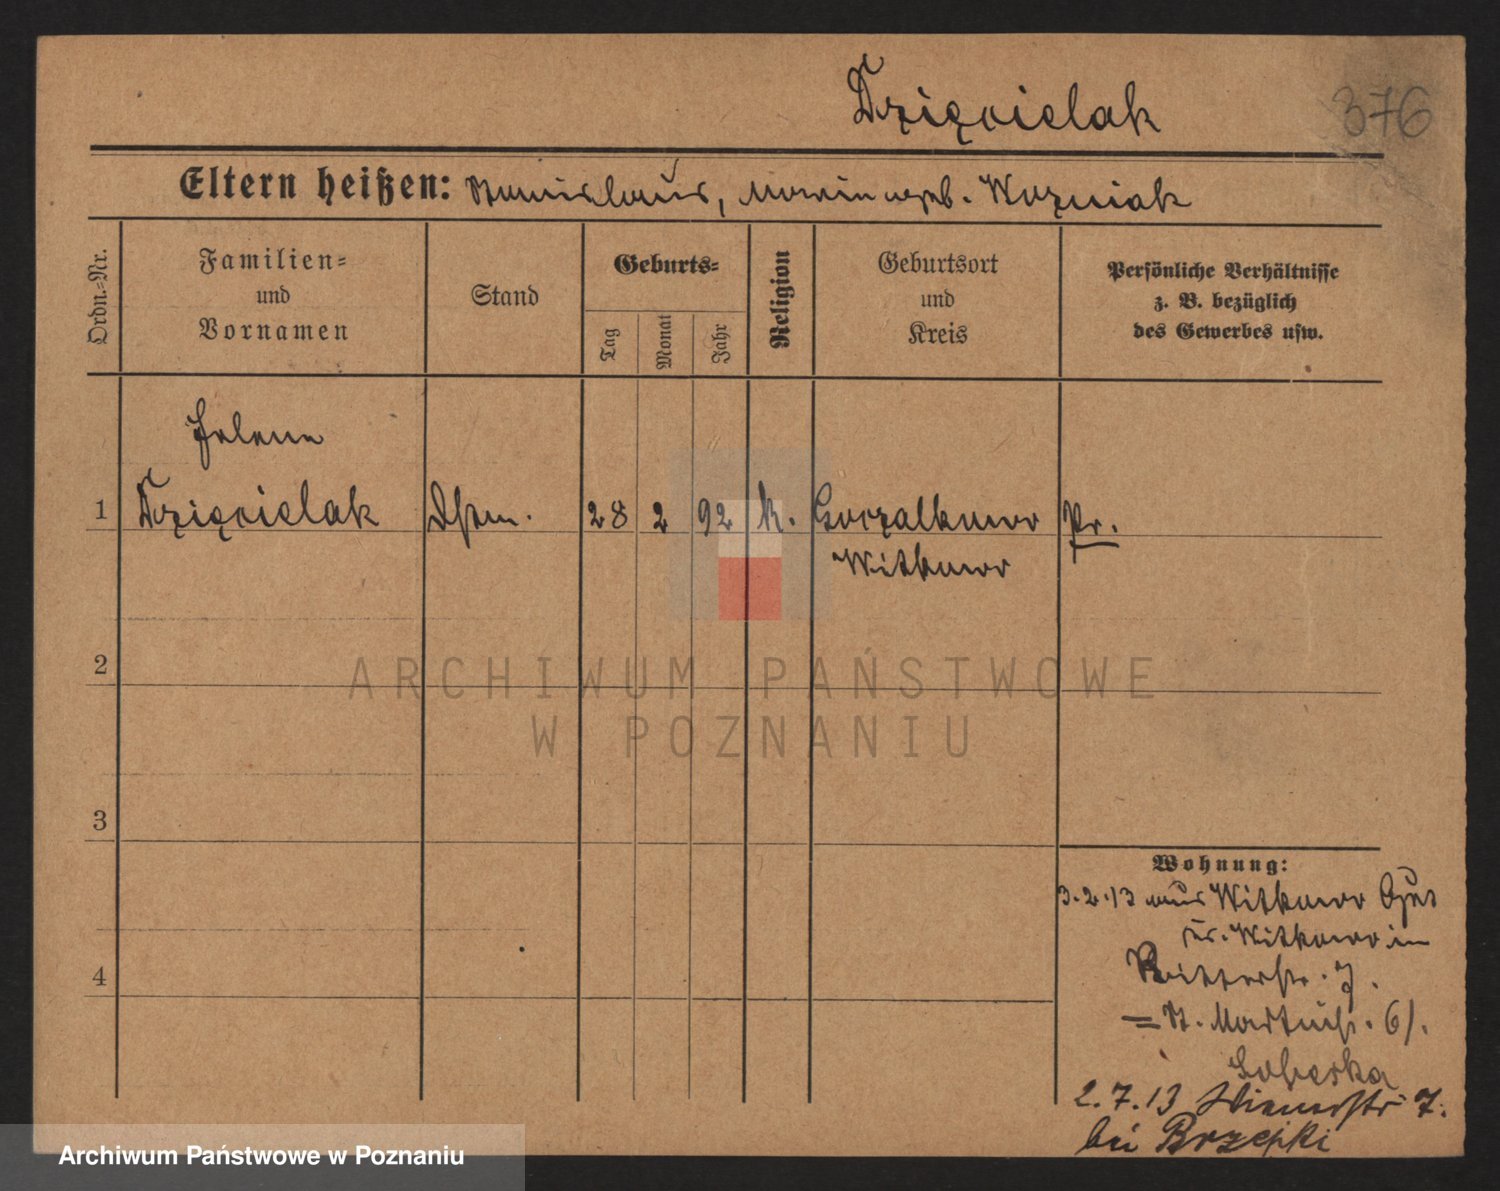 Dzięcielak
376
Eltern heißen: Stanislaus, Marian geb. Wozniak
Ordn.-Nr.
Familien-
und
Vornamen
Stand
Geburts-
Tag
Monat
Jahr
Religion
Geburtsort
und
Kreis
Persönliche Verhältnisse
z. B. bezüglich
des Gewerbes usw.
Helena
1 Dzięcielak 28 2 92 k. Gorzalkowo Pr.
Witkowo
2
3
4
Wohnung:
3.2.13 aus Witkowo
Kr. Witkowo in
Ritterstr. 7.
= St. Martinstr. 61.
2.7.13 7.
bei Brzeski
ARCHIWUM PAŃSTWOWE
W POZNANIU
Archiwum Państwowe w Poznaniu